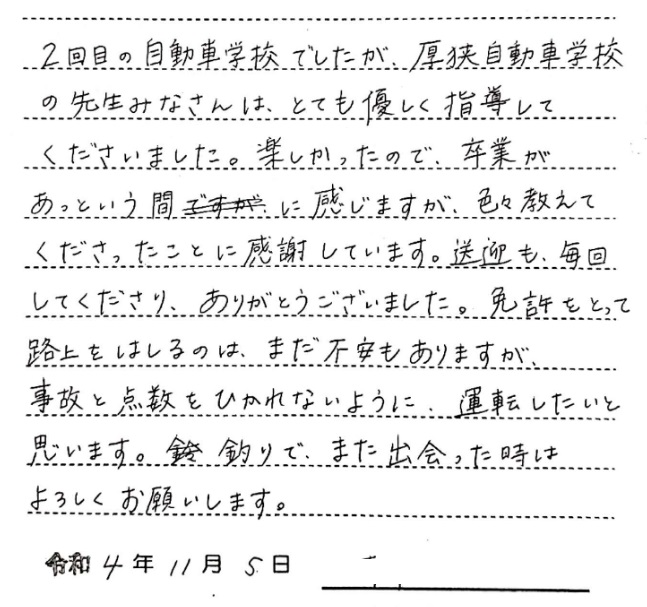 2回目の自動車学校でしたが、厚狭自動車学校
の先生みなさんは、とても優しく指導して
くださいました。楽しかったので、卒業が
あっという間ですが、に感じますが、色々教えて
くださったことに感謝しています。送迎も、毎回
してくださり、ありがとうございました。免許をとって
路上をはしるのは、まだ不安もありますが、
事故と点数をひかれないように、運転したいと
思います。釣りで、また出会った時は
よろしくお願いします。
令和4年11月5日